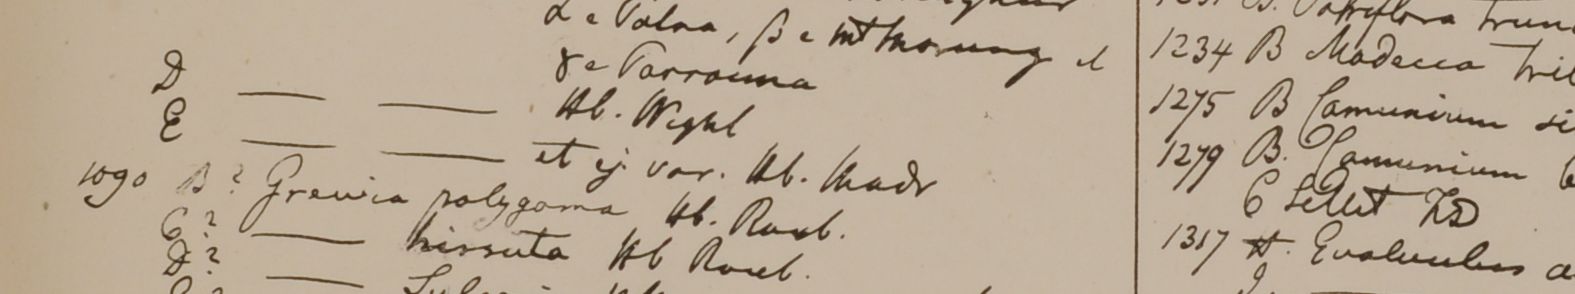 α e Patna, β e Mt Morung et
γ e Tarrouma
D — — Hb. Wight
E — — et ej. var. Hb. Madr
1090 B? Grewia polygama Hb. Roxb.
C? — hirsuta Hb Roxb.
D? —
1234 B Modecca Tril
1275 B Camunium si
1279 B. Camunium
C Sillet FD
1317 H. Evolvulus a